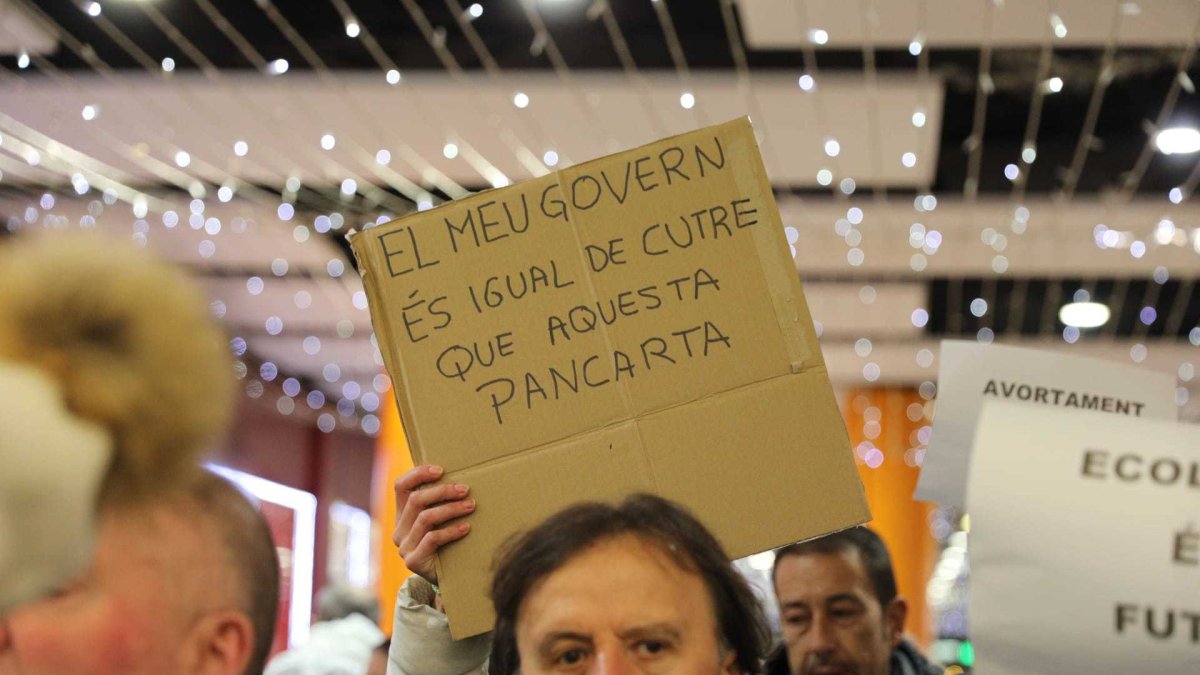 EL MEU GOVERN
ÉS IGUAL DE CUTRE
QUE AQUESTA
PANCARTA
AVORTAMENT
ECOL
É
FUT